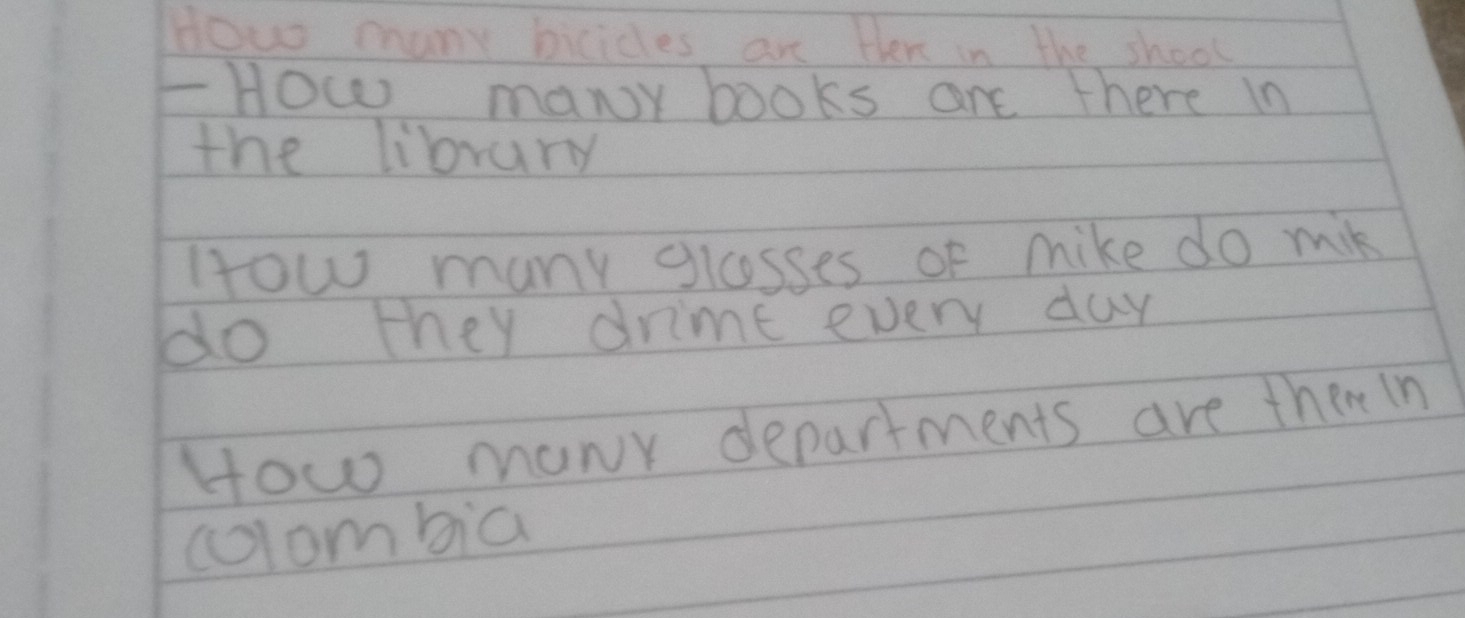 How many bicicles are ther in the shool
- How many books are there in
the library
How many glasses of mike do mik
do they drime every day
How many departments are there in
colombia